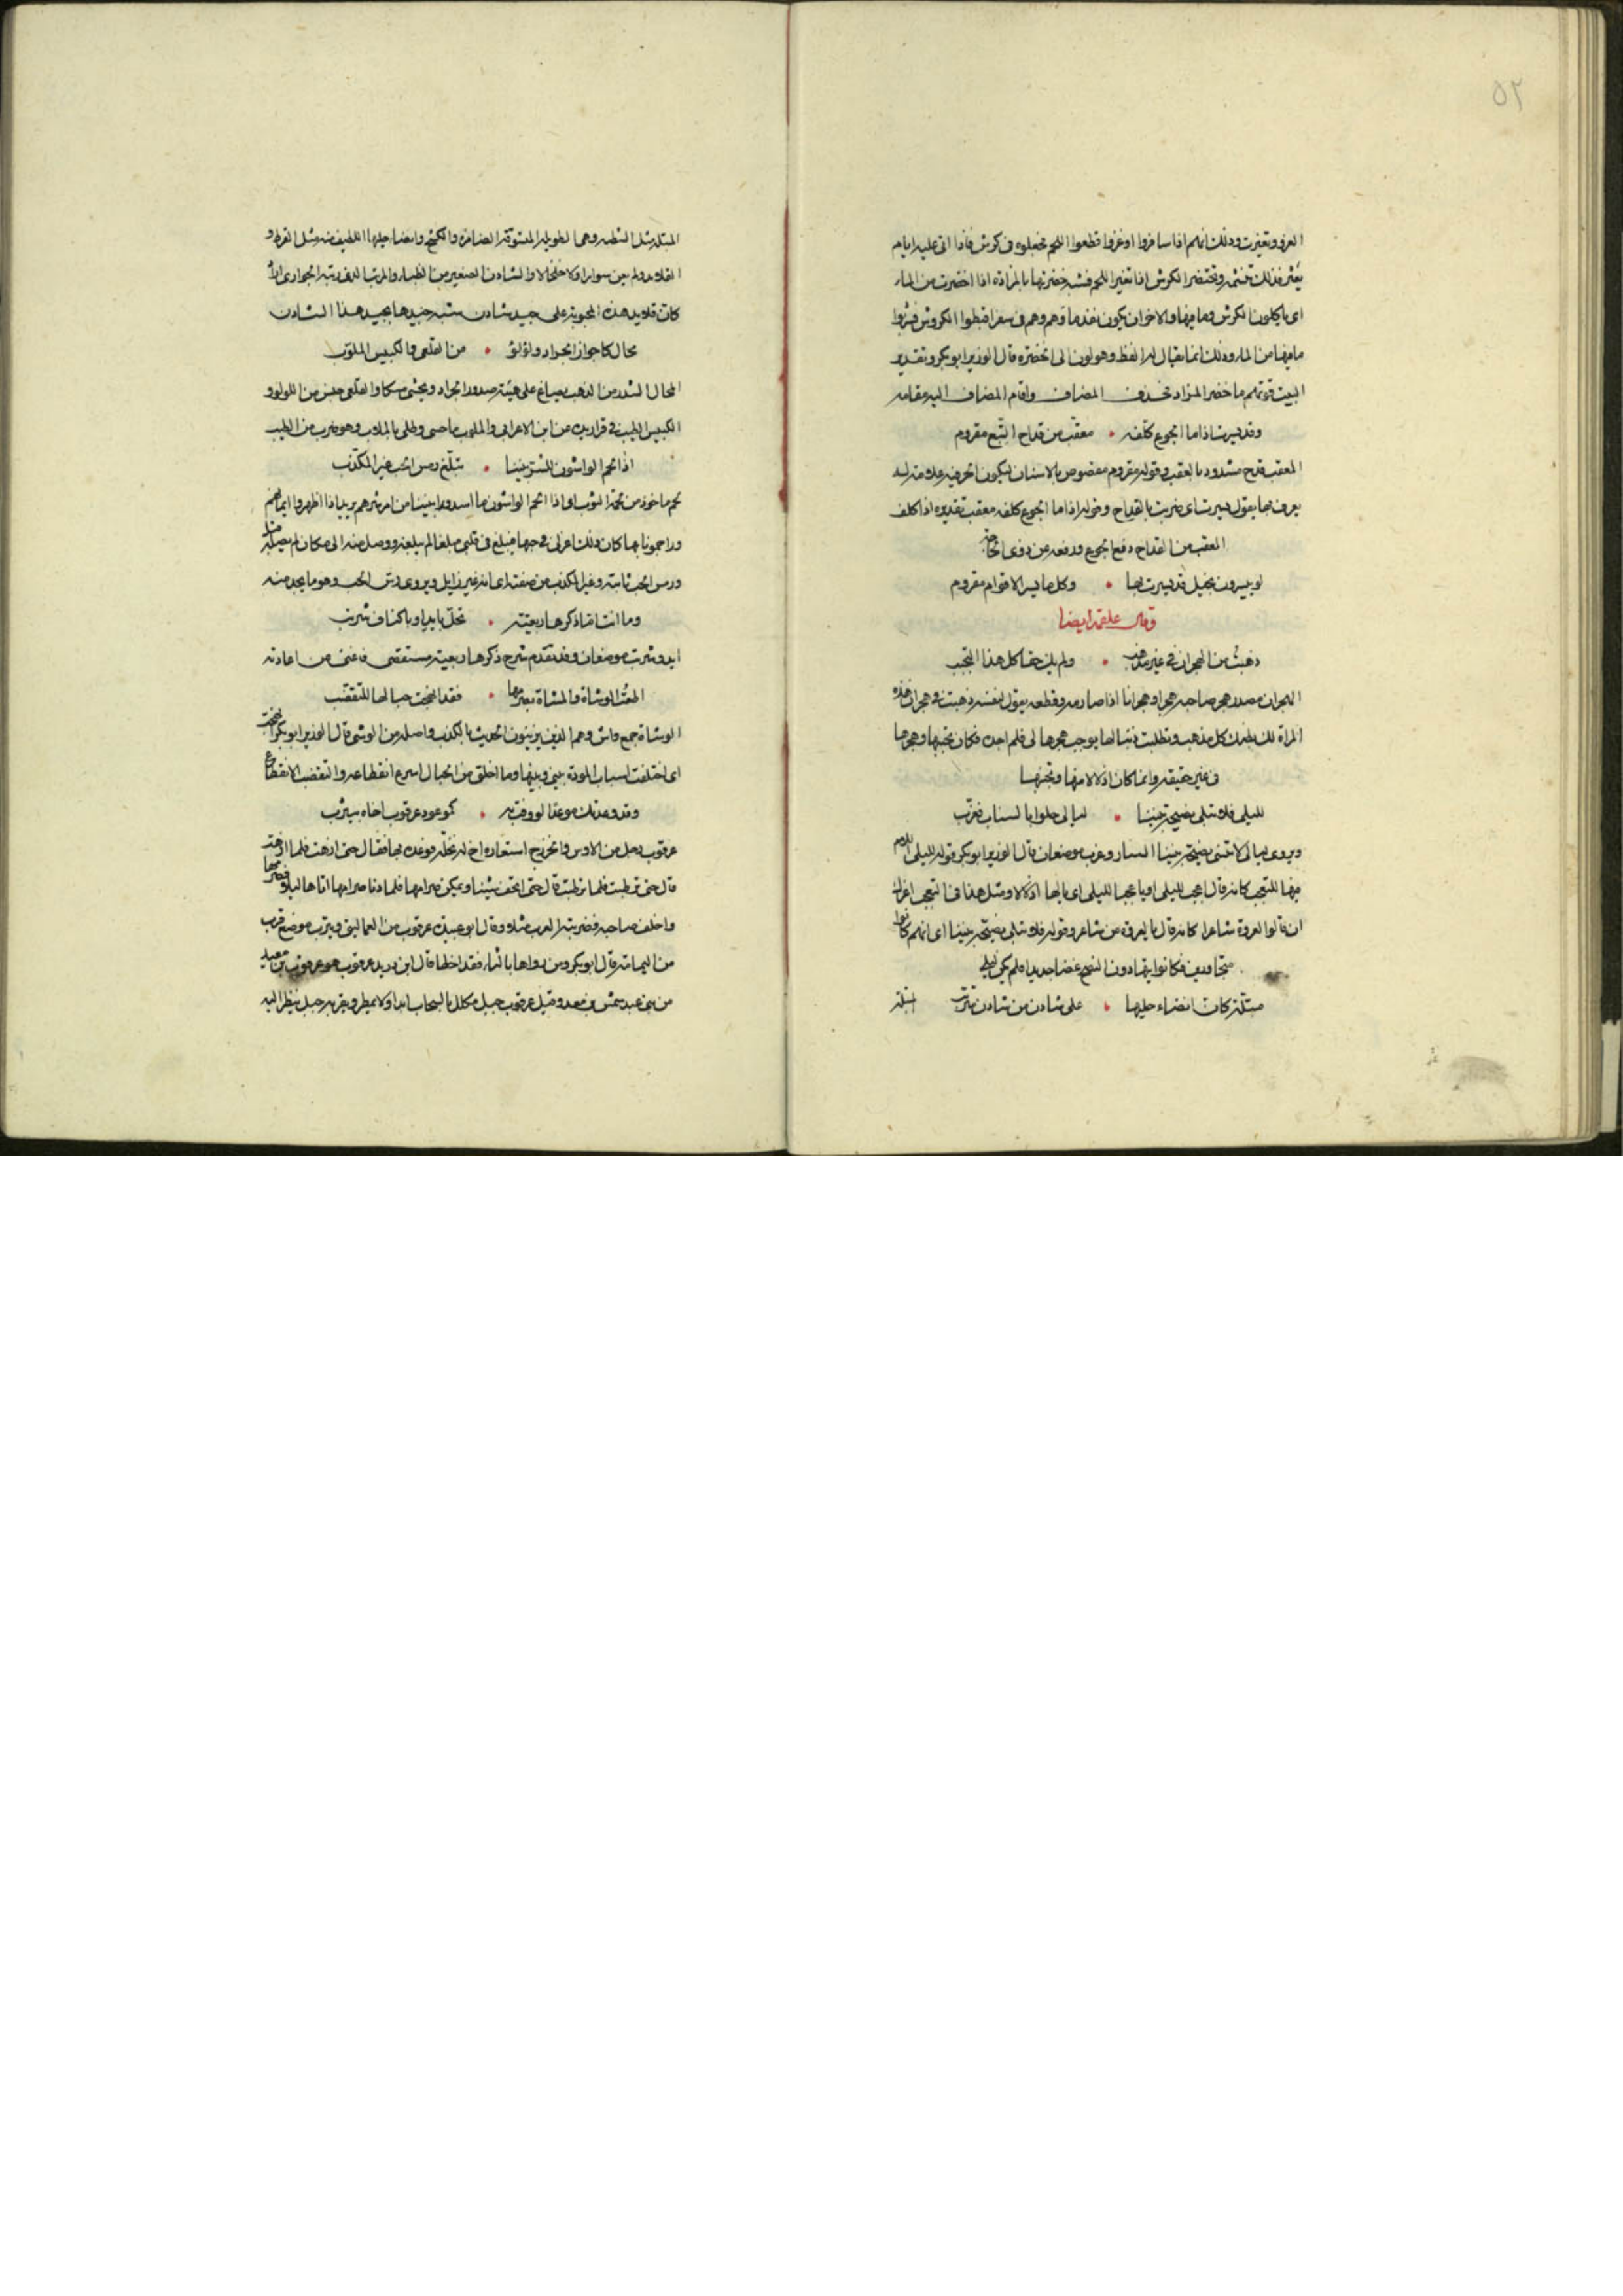 ٥٢
الغزو وتغيرت وذلك انهم اذا سافروا او غزوا قطعوا اللحم فجعلوه في كرش فاذا اتى عليه ايام
يغير فذلك وتخضر الكرش اذا تغير اللحم فشبه خضرتها بالمزادة اذا اخضرت من الماء
اى ياكلون الكرش وما فيها والاخر ان يكون نفد ماؤهم وهم في سفر افتظوا الكروش فشربوا
ما فيها من الماء وذلك انما يقال له الفظ وهو لون الى الخضرة قال الوزير ابو بكر وتقدير
البيت قوتهم ما خضر المزاد فحذف المضاف واقام المضاف اليه مقامه
وقد يسرت اذا ما الجوع كلفه • معقب من قداح النبع مقروم
المعقب قدح مشدود بالعقب وقوله مقروم معضوض بالاسنان ليكون الحز فيه علامة له
يعرف بها يقول يسرت اى ضربت بالقداح وقوله اذا ما الجوع كلفه معقب تقديره اذا كلف
المعقب من القداح دفع الجوع ودفعه عن ذوى الحاجة
لو ييسرون بخيل قد يسرت بها • وكل ما يسر الاقوام مقروم
وقال علقمة ايضا
ذهبت من الهجران في غير مذهب • ولم يك حقا كل هذا التجنب
الهجران مصدر هجر صاحبه هجرا وهجرانا اذا صارمه وقطعه يقول لنفسه ذهبت في هجران هذه
المراة لك بطنك كل مذهب وتطلبت ذنبا لها يوجب هجرها لى فلم اجده فكان تجنبها وهجرها
في غير حقيقة وانما كان اذلالا منها وتجنبها
لليلى فلا تبلى نصيحة بيننا • ليالى حلوا بالستار فغرب
ويروى ليالى لا تبلى نصيحة بيننا الستار وغرب موضعان قال الوزير ابو بكر قوله لليلى اللام
فيها للتعجب كانه قال اعجب لليلى او يا عجبا لليلى اى يالها اذلالا ومثل هذا في التعجب
ان قالوا لعروة شاعرا كانه قال يا لعروة من شاعر وقوله فلا تبلى نصيحة بيننا اى انهم كانوا
متجاورين فكانوا يتهادون النصح غضا جديدا فلم يكن يبلى
مبتلة كان انضاء حليها • على شادن من شادن متربب
المبتلة
المبتلة مثل الشطبة وهى الطويلة المستوية الضامرة والكشح وانضاء حليها اللطيف منه مثل القرط و
القلايد ولم يعن سوارا ولا خلخالا والشادن الصغير من الظباء والمربب الذى ربته الجوارى
كان قلايد هذه المحبوبة على جيد شادن شبه جيدها بجيد هذا الشادن
محال كاجواز الجراد ولؤلؤ • من القلعى والكبيس الملوب
المحال الشذر من الذهب يصاغ على هيئة صدور الجراد ويحشى مسكا والقلعى جنس من اللؤلؤ و
الكبيس الطيب في قرارين عن ابن الاعرابى والملوب ما حسى وطلى بالملاب وهو ضرب من الطيب
اذا الحم الواشون للشر بيننا • تبلغ رس الحب غير المكذب
الحم ماخوذ من لحمة الثوب اى اذا الحم الواشون ما اسدوه بيننا من امر شرهم يريد اذا اظهروا
وراجمونا بها كان ذلك اغرالى في حبها فبلغ في قلبى مبلغا لم يبلغه ووصل منه الى مكان لم يصل
ورس الحب ثابته وغير المكذب من صفته اى انه غير زايل ويروى رس الحب وهو ما يجد منه
وما انت ام ما ذكرها ربعية • تحل باير او باكناف شربب
اير وشربب موضعان وقد تقدم شرح ذكرها ربعية مستقصى فاغنى من اعادته
اطعت الوشاة والمشاة بصرمها • فقد انهجت حبالها للتقضب
الوشاة جمع واش وهم الذين يزينون الحديث بالكذب واصله من الوشى قال الوزير ابو بكر انهجت
اى اخلقت اسباب المودة بينى وبينها وما اخلق من الحبال اسرع انقطاعه والتقضب الانقطاع
وقد وعدتك موعدا لو وفت به • كموعود عرقوب اخاه بيثرب
عرقوب رجل من الاوس والخزرج استعاره اخ له نخلة فوعده بها فقال حتى ازهت فلما ازهت
قال حتى ترطبت فلما رطبت قال حتى تجف شيئا ويمكن صرامها فلما دنا صرامها اتاها ليلا فصرمها
واخلف صاحبه فضربته العرب مثلا وقال ابو عبيدة عرقوب من العماليق ويترب موضع قرب
من اليمامة قال ابو بكر ومن رواها بالثاء فقد اخطا قال ابن دريد عرقوب هو عرقوب بن معبد
من بنى عبد شمس بن سعد وقيل عرقوب جبل مكلل بالسحاب ابدا ولا يمطر ويقربه جبل ينظر اليه